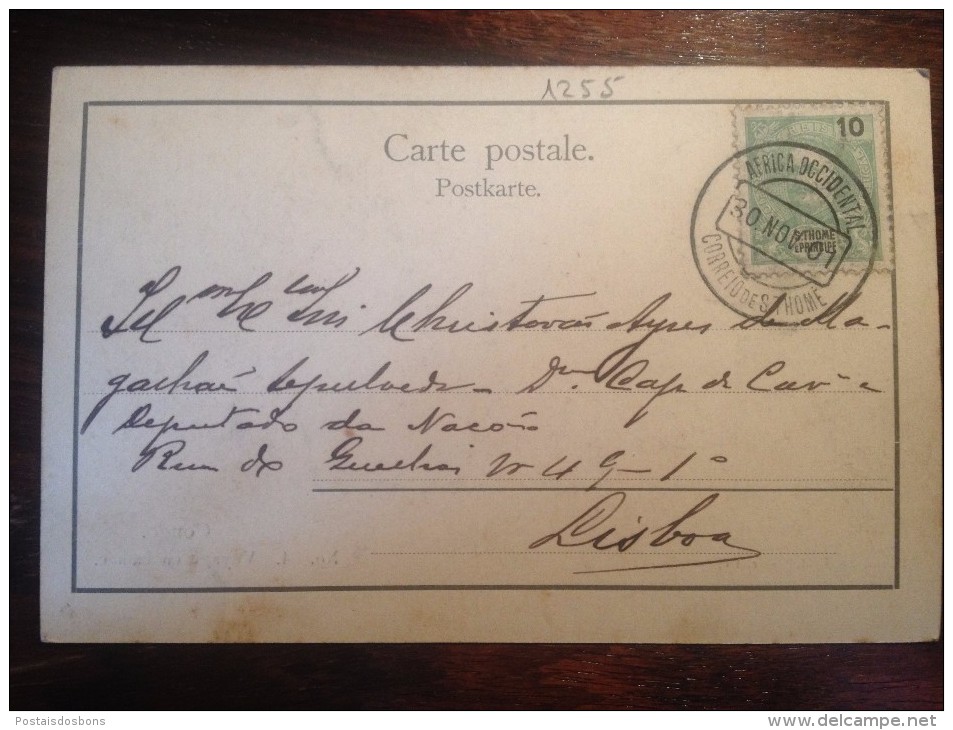 1255
Carte postale.
Postkarte.
10
AFRICA OCCIDENTAL
30 NOV 01
S. THOMÉ
E PRINCIPE
CORREIO DE S. THOMÉ
Christovão Ayres de Ma-
galhães Sepulveda Cap. de Cav.
Deputado da Nação
Rua de 49-1º
Lisboa
Postaisdosbons
www.delcampe.net